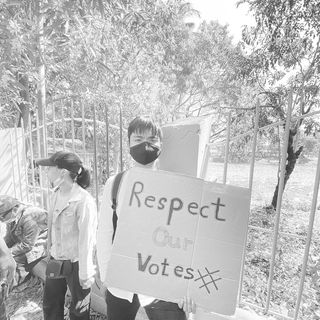 Respect
Our
Votes